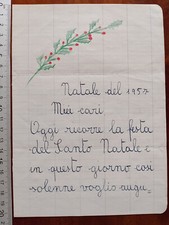 Natale del 1957
Miei cari
Oggi ricorre la festa
del Santo Natale e
in questo giorno così
solenne voglio augu=